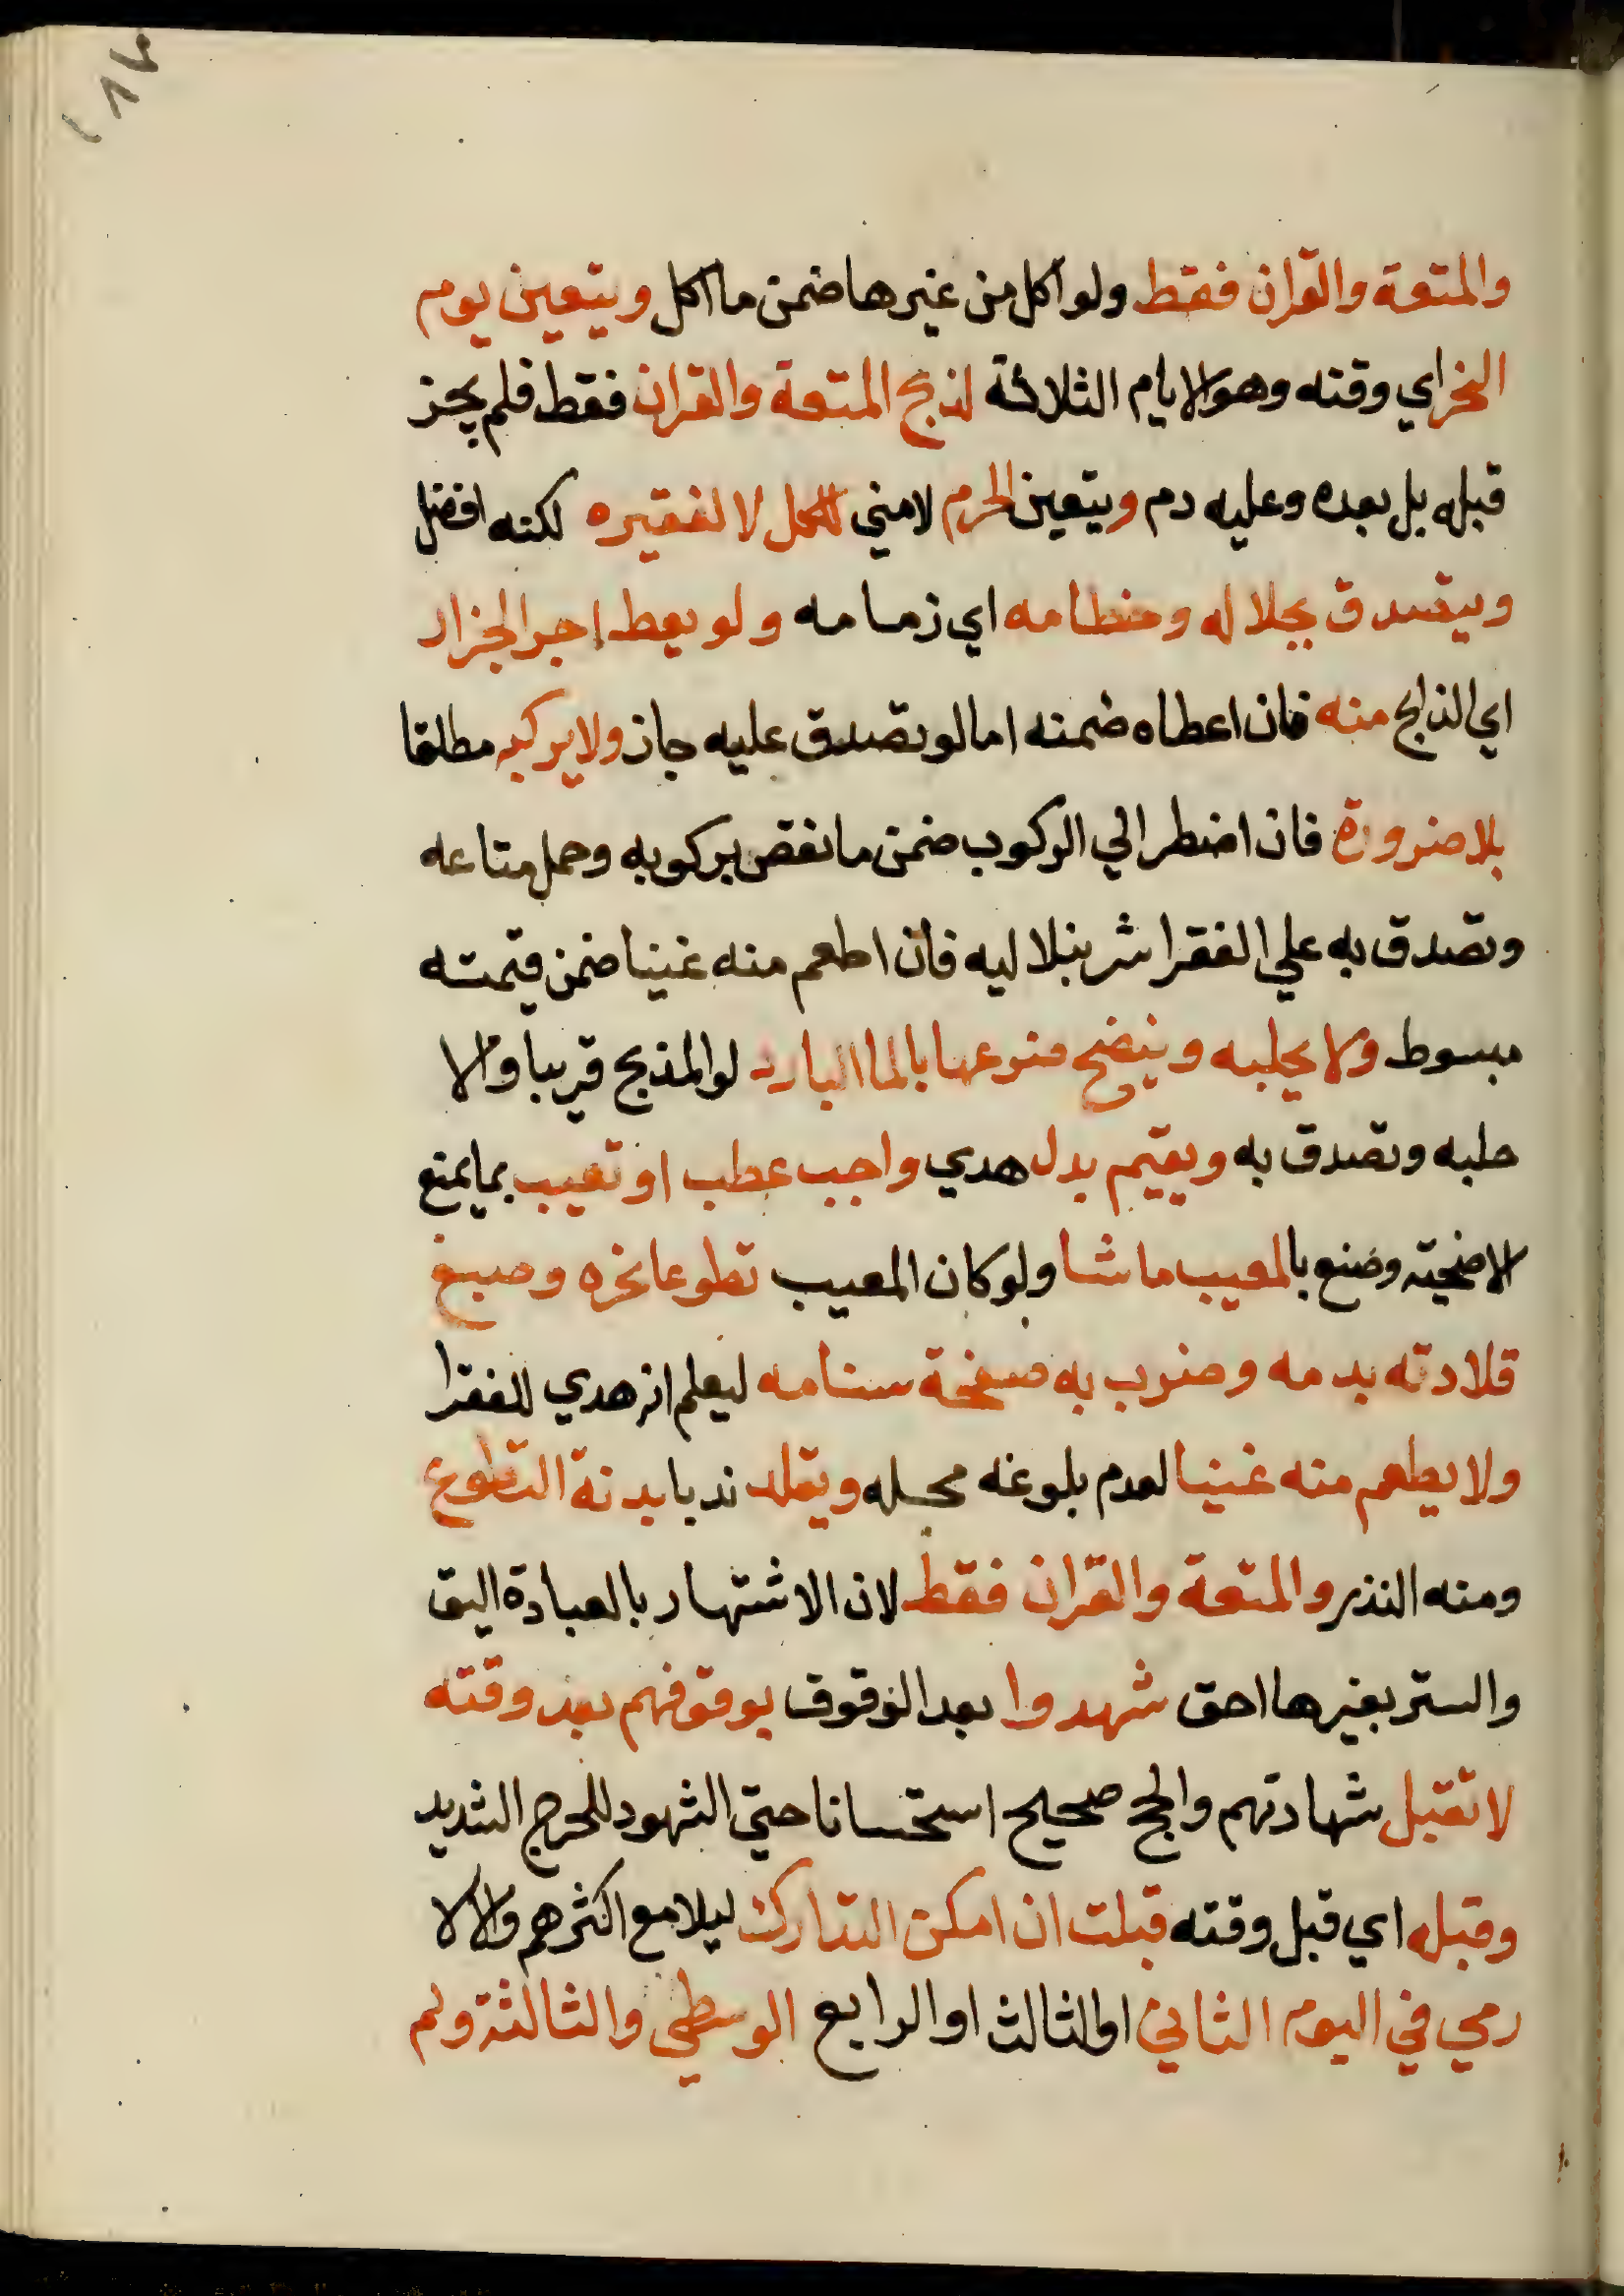 والمتعة والقران فقط ولو اكل من غيرها ضمن ما اكل ويتعين يوم
النحر اي وقته وهو الايام الثلاثة لذبح المتعة والقران فقط فلم يجز
قبله بل بعده وعليه دم ويتعين الحرم لا مني للكل لا لفقيره لكنه افضل
ويتصدق بجلاله وخطامه اي زمامه ولو يعط اجر الجزار
اي الذابح منه فان اعطاه ضمنه اما لو تصدق عليه جاز ولا يركبه مطلقا
بلا ضرورة فان اضطر الي الركوب ضمن ما نقص بركوبه وحمل متاعه
وتصدق به علي الفقرا شرنبلاليه فان اطعم منه غنيا ضمن قيمته
مبسوط ولا يحلبه وينضح ضرعها بالما البارد لو المذبح قريبا والا
حلبه وتصدق به ويقيم بدل هدي واجب عطب او تعيب بما يمنع
الاضحية وصنع بالمعيب ما شا ولو كان المعيب تطوعا نحره وصبغ
قلادته بدمه وضرب به صفحة سنامه ليعلم انه هدي للفقرا
ولا يطعم منه غنيا لعدم بلوغه محله ويقلد ندبا بدنة التطوع
ومنه النذر والمتعة والقران فقط لان الاشتهار بالعبادة اليق
والستر بغيرها احق شهدوا بعد الوقوف بوقوفهم بعد وقته
لا تقبل شهادتهم والحج صحيح استحسانا حتي الشهود للحرج الشديد
وقبله اي قبل وقته قبلت ان امكن التدارك ليلا مع اكثرهم والا لا
رمي في اليوم الثاني او الثالث او الرابع الوسطي والثالثة ولم